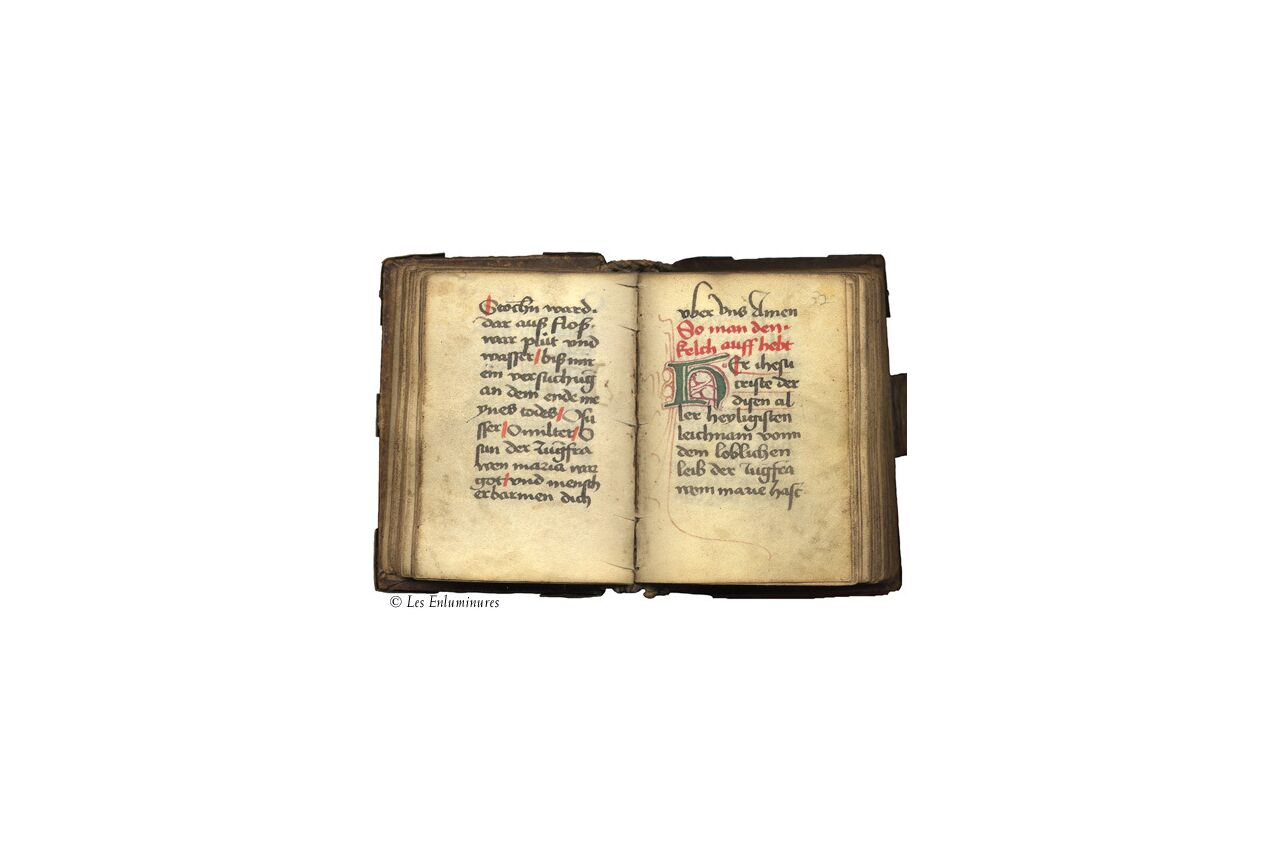 Stochn ward.
dar auß floß.
war plut vnd
wasser biß mir
ein versuchūg
an dem ende me
ynes todes O su
sser O milter O
sun der Jūgfra
wen maria war
got vnd mensch
erbarmen dich
vber vns Amen
So man den
kelch auff hebt
HEr ihesu
criste der
disen al
ler heyligisten
leichnam vonn
dem loblichen
leib der Jūgfra
wenn marie hast
32
© Les Enluminures